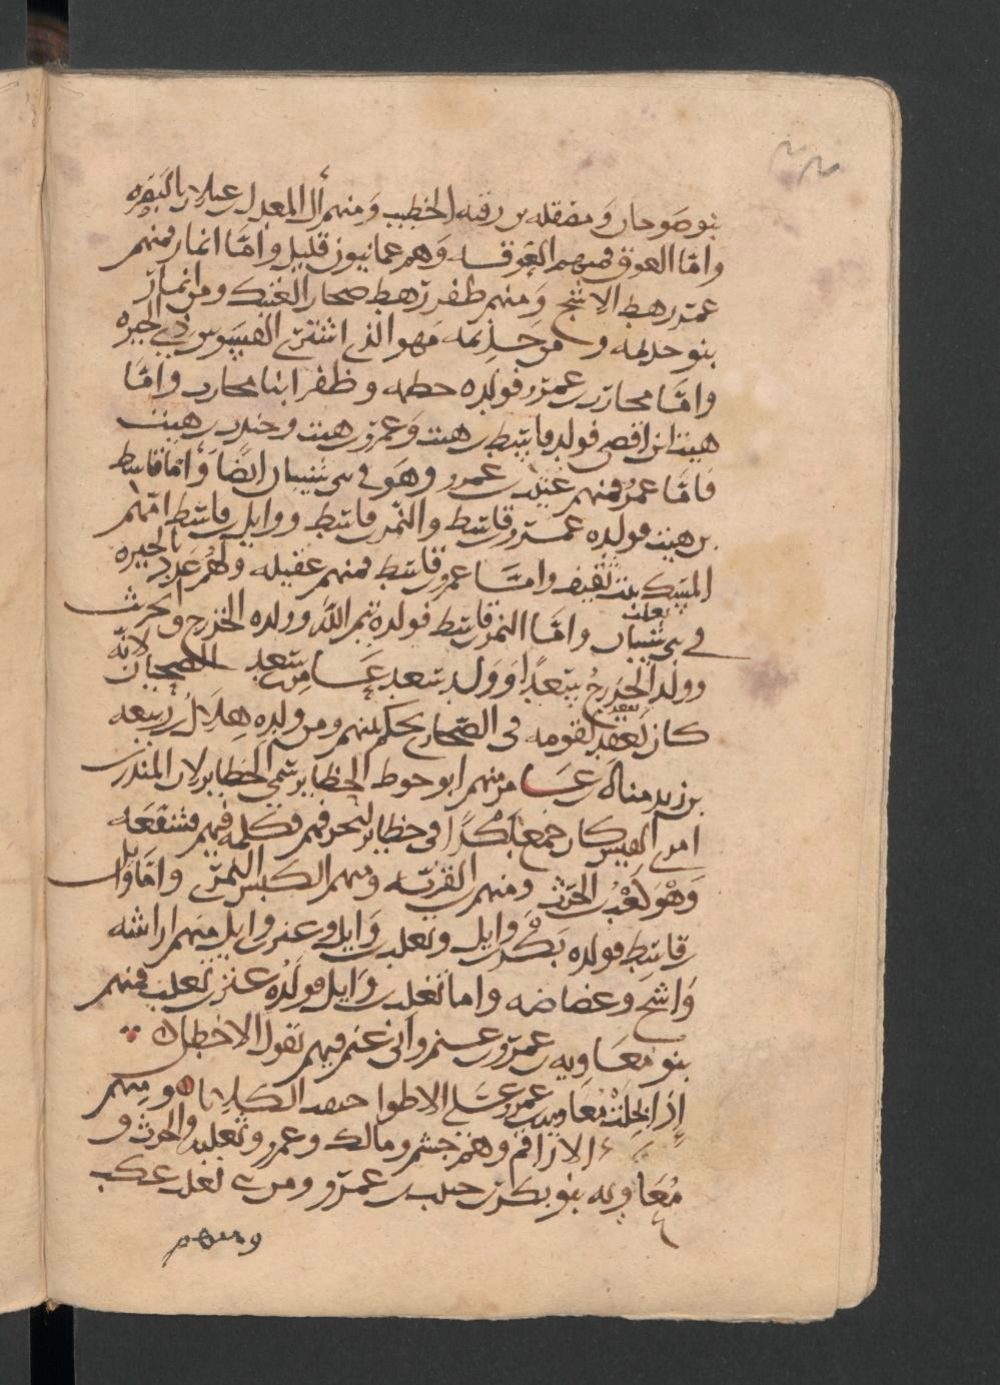 بنو صوحان ومصقله بن رقبه الخطيب ومنهم آل المعدل بن عيلان بالبصره
واما العوق فمنهم العوقه وهم عمانيون قليل واما انمار فمنهم
عمرو رهط الاشج ومنهم ظفر رهط صحار العبدي ومن انمار
بنو حذيمه ومن حذيمه مهو الذي اشترى الفسو من في الحيره
واما محارب بن عمرو فولده حطمه وظفر ابنا محارب واما
هنب ابن افصى فولد قاسط بن هنب وعمرو بن هنب وخندب بن هنب
فاما عمرو فمنهم عتيب بن عمرو وهو في بني شيبان ايضا واما قاسط
بن هنب فولده عمرو بن قاسط والنمر بن قاسط ووايل بن قاسط امهم
المسك بنت ثقيف واما عمرو بن قاسط فمنهم عفيله ولهم عدد بالجيره
في بني شيبان تغلب واما النمر بن قاسط فولده تيم الله وولده الخزرج والحرث
وولد الخزرج سعدا وولد سعد عامر بن سعد الضحيان لانه
كان يقعد لقومه في الضحا يحكم بينهم ومن ولده هلال بن ربيعه
بن زيد مناه بن عامر منهم ابو حوط الحظاير سمي الحظاير لان المنذر بن
امري القيس كان جمع بكرا في حظاير لنحرهم فكلمه فيهم فشفعه
وهو كعب بن الحرث ومنهم بن القريه ومنهم الكيس النمري واما وايل
بن قاسط فولده بكر بن وايل وتغلب بن وايل وعنز بن وايل منهم اراشه
واشج وعضاضه واما تغلب بن وايل فولده غنم بن تغلب فمنهم
بنو معاويه بن عمرو بن غنم وابي غنم فيهم يقول الاخطل
إذا بخلت معاويه بن عمرو على الاطوا حنقت الكلابا ومنهم
الاراقم وهم جشم ومالك وعمرو وثعلبه والحرث و
معاويه بنو بكر بن حبيب بن عمرو ومن بني تغلب عكب
ومنهم